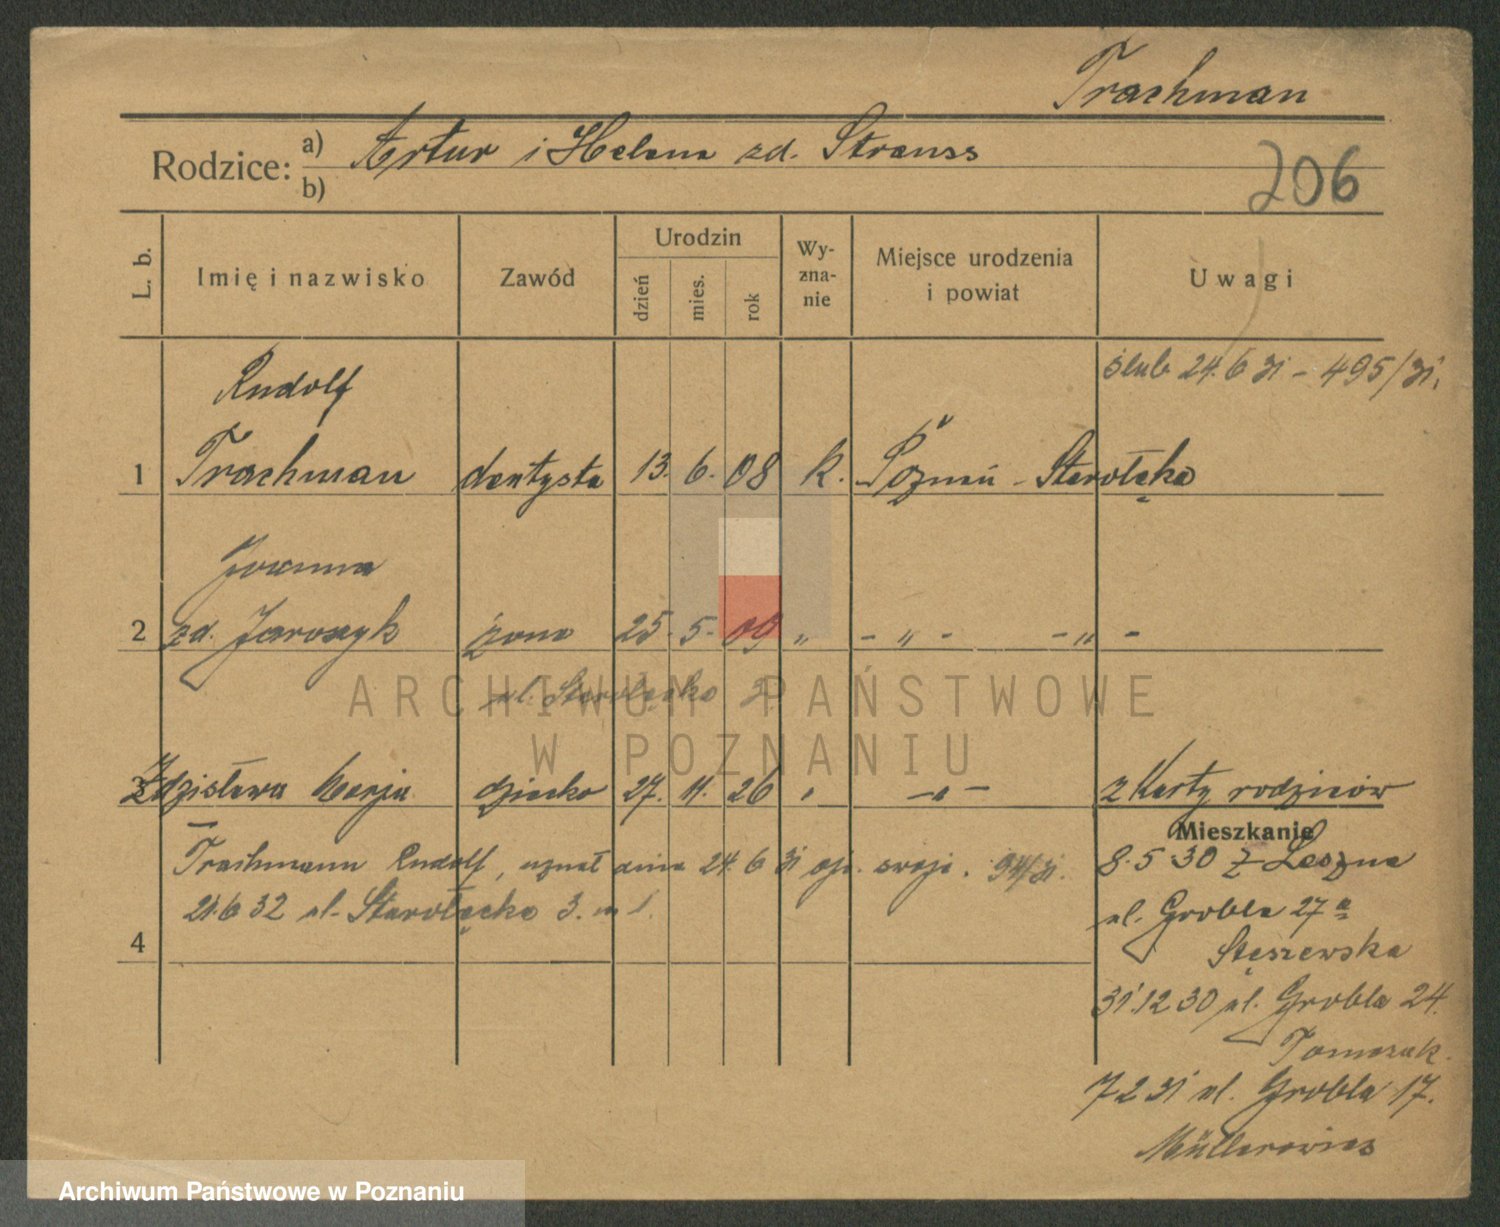 Trachman
Rodzice: a) Artur i Helena zd. Strauss
b)
206
L. b.
Imię i nazwisko
Zawód
Urodzin
dzień
mies.
rok
Wy-
zna-
nie
Miejsce urodzenia
i powiat
Uwagi
ślub 24.6 31 - 495/31.
Rudolf
1 Trachman dentysta 13. 6. 08 k. Poznań - Starołęka
Joanna
2 zd. Jaroszyk żona 25. 5. 09 „ - „ - - „ -
ul. Starołęcka 3
3 Zdzisława Marja dziecko 27. 11. 26 „ - „ - z Karty rodziców
Mieszkanie
Trachmann Rudolf, uznał dnia 24. 6 31 swoje. 94/31.
21.6 32 ul. Starołęcka 3. m 1.
4
8. 5 30 z Leszna
ul. Grobla 27 a
Stęszewska
31.12 30 ul. Grobla 24.
Tomczak.
7 2 31 ul. Grobla 17.
Müllerowicz
ARCHIWUM PAŃSTWOWE
W POZNANIU
Archiwum Państwowe w Poznaniu